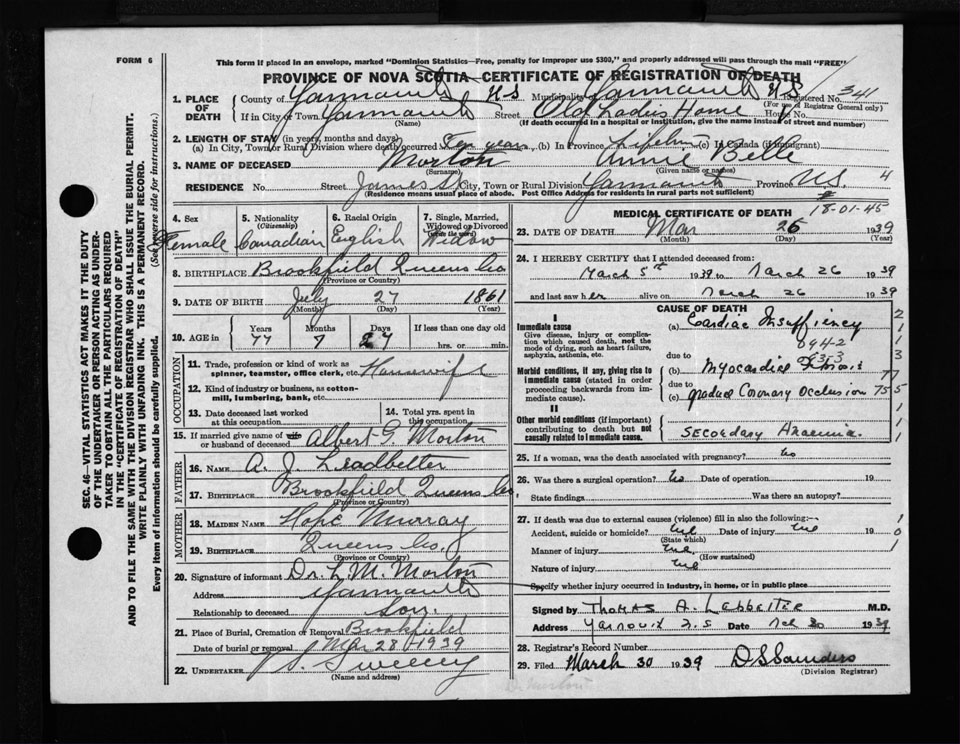 FORM 6
This form if placed in an envelope, marked "Dominion Statistics—Free, penalty for improper use $300," and properly addressed will pass through the mail "FREE"
PROVINCE OF NOVA SCOTIA—CERTIFICATE OF REGISTRATION OF DEATH
1. PLACE OF DEATH County of Yarmouth N S Municipality of Yarmouth N S Registered No. 341
(For use of Registrar General only)
If in City or Town Yarmouth Street Old Ladies Home House No.
(Name) (If death occurred in a hospital or institution, give the name instead of street and number)
2. LENGTH OF STAY (in years, months and days)
(a) In City, Town or Rural Division where death occurred Ten years (b) In Province Lifetime (c) In Canada (if immigrant)
3. NAME OF DECEASED Morton Annie Belle
(Surname) (Given name or names)
RESIDENCE No. Street James St City, Town or Rural Division Yarmouth Province N.S. 4
(Residence means usual place of abode. Post Office Address for residents in rural parts not sufficient)
18-01-45
4. Sex 5. Nationality (Citizenship) 6. Racial Origin 7. Single, Married, Widowed or Divorced (write the word)
Female Canadian English Widow
8. BIRTHPLACE Brookfield Queens Co
(Province or Country)
9. DATE OF BIRTH July 27 1861
(Month) (Day) (Year)
10. AGE in Years Months Days If less than one day old
77 7 27 hrs. or min.
OCCUPATION
11. Trade, profession or kind of work as spinner, teamster, office clerk, etc. Housewife
12. Kind of industry or business, as cotton-mill, lumbering, bank, etc.
13. Date deceased last worked at this occupation
14. Total yrs. spent in this occupation
15. If married give name of wife or husband of deceased Albert G. Morton
FATHER
16. NAME A. J. Leadbetter
17. BIRTHPLACE Brookfield Queens Co.
(Province or Country)
MOTHER
18. MAIDEN NAME Hope Murray
19. BIRTHPLACE Queens Co.
(Province or Country)
20. Signature of informant Dr. L. M. Morton
Address Yarmouth
Relationship to deceased Son.
21. Place of Burial, Cremation or Removal Brookfield
Date of burial or removal Mar 28 1939
22. UNDERTAKER Sweeny
(Name and address)
MEDICAL CERTIFICATE OF DEATH
23. DATE OF DEATH Mar 26 1939
(Month) (Day) (Year)
24. I HEREBY CERTIFY that I attended deceased from:
March 5th 1939 to March 26 1939
and last saw her alive on March 26 1939
CAUSE OF DEATH
I
Immediate cause
Give disease, injury or complication which caused death, not the mode of dying, such as heart failure, asphyxia, asthenia, etc.
(a) Cardiac Insuffiency
094-2
due to
Morbid conditions, if any, giving rise to immediate cause (stated in order proceeding backwards from immediate cause).
(b) Myocardial
due to
(c) Coronary Occlusion
II
Other morbid conditions (if important) contributing to death but not causally related to immediate cause.
Secondary Anaemia.
25. If a woman, was the death associated with pregnancy? No
26. Was there a surgical operation? No Date of operation 19
State findings Was there an autopsy?
27. If death was due to external causes (violence) fill in also the following:—
Accident, suicide or homicide? Date of injury 19
(State which)
Manner of injury
(How sustained)
Nature of injury
Specify whether injury occurred in industry, in home, or in public place
Signed by Thomas A. Lebbetter M.D.
Address Date 30 1939
28. Registrar's Record Number
29. Filed March 30 1939 D S Saunders
(Division Registrar)
Dr Morton
SEC. 46—VITAL STATISTICS ACT MAKES IT THE DUTY
OF THE UNDERTAKER OR PERSON ACTING AS UNDER-
TAKER TO OBTAIN ALL THE PARTICULARS REQUIRED
IN THE "CERTIFICATE OF REGISTRATION OF DEATH"
AND TO FILE THE SAME WITH THE DIVISION REGISTRAR WHO SHALL ISSUE THE BURIAL PERMIT.
WRITE PLAINLY WITH UNFADING INK. THIS IS A PERMANENT RECORD.
Every item of information should be carefully supplied. (See reverse side for instructions.)